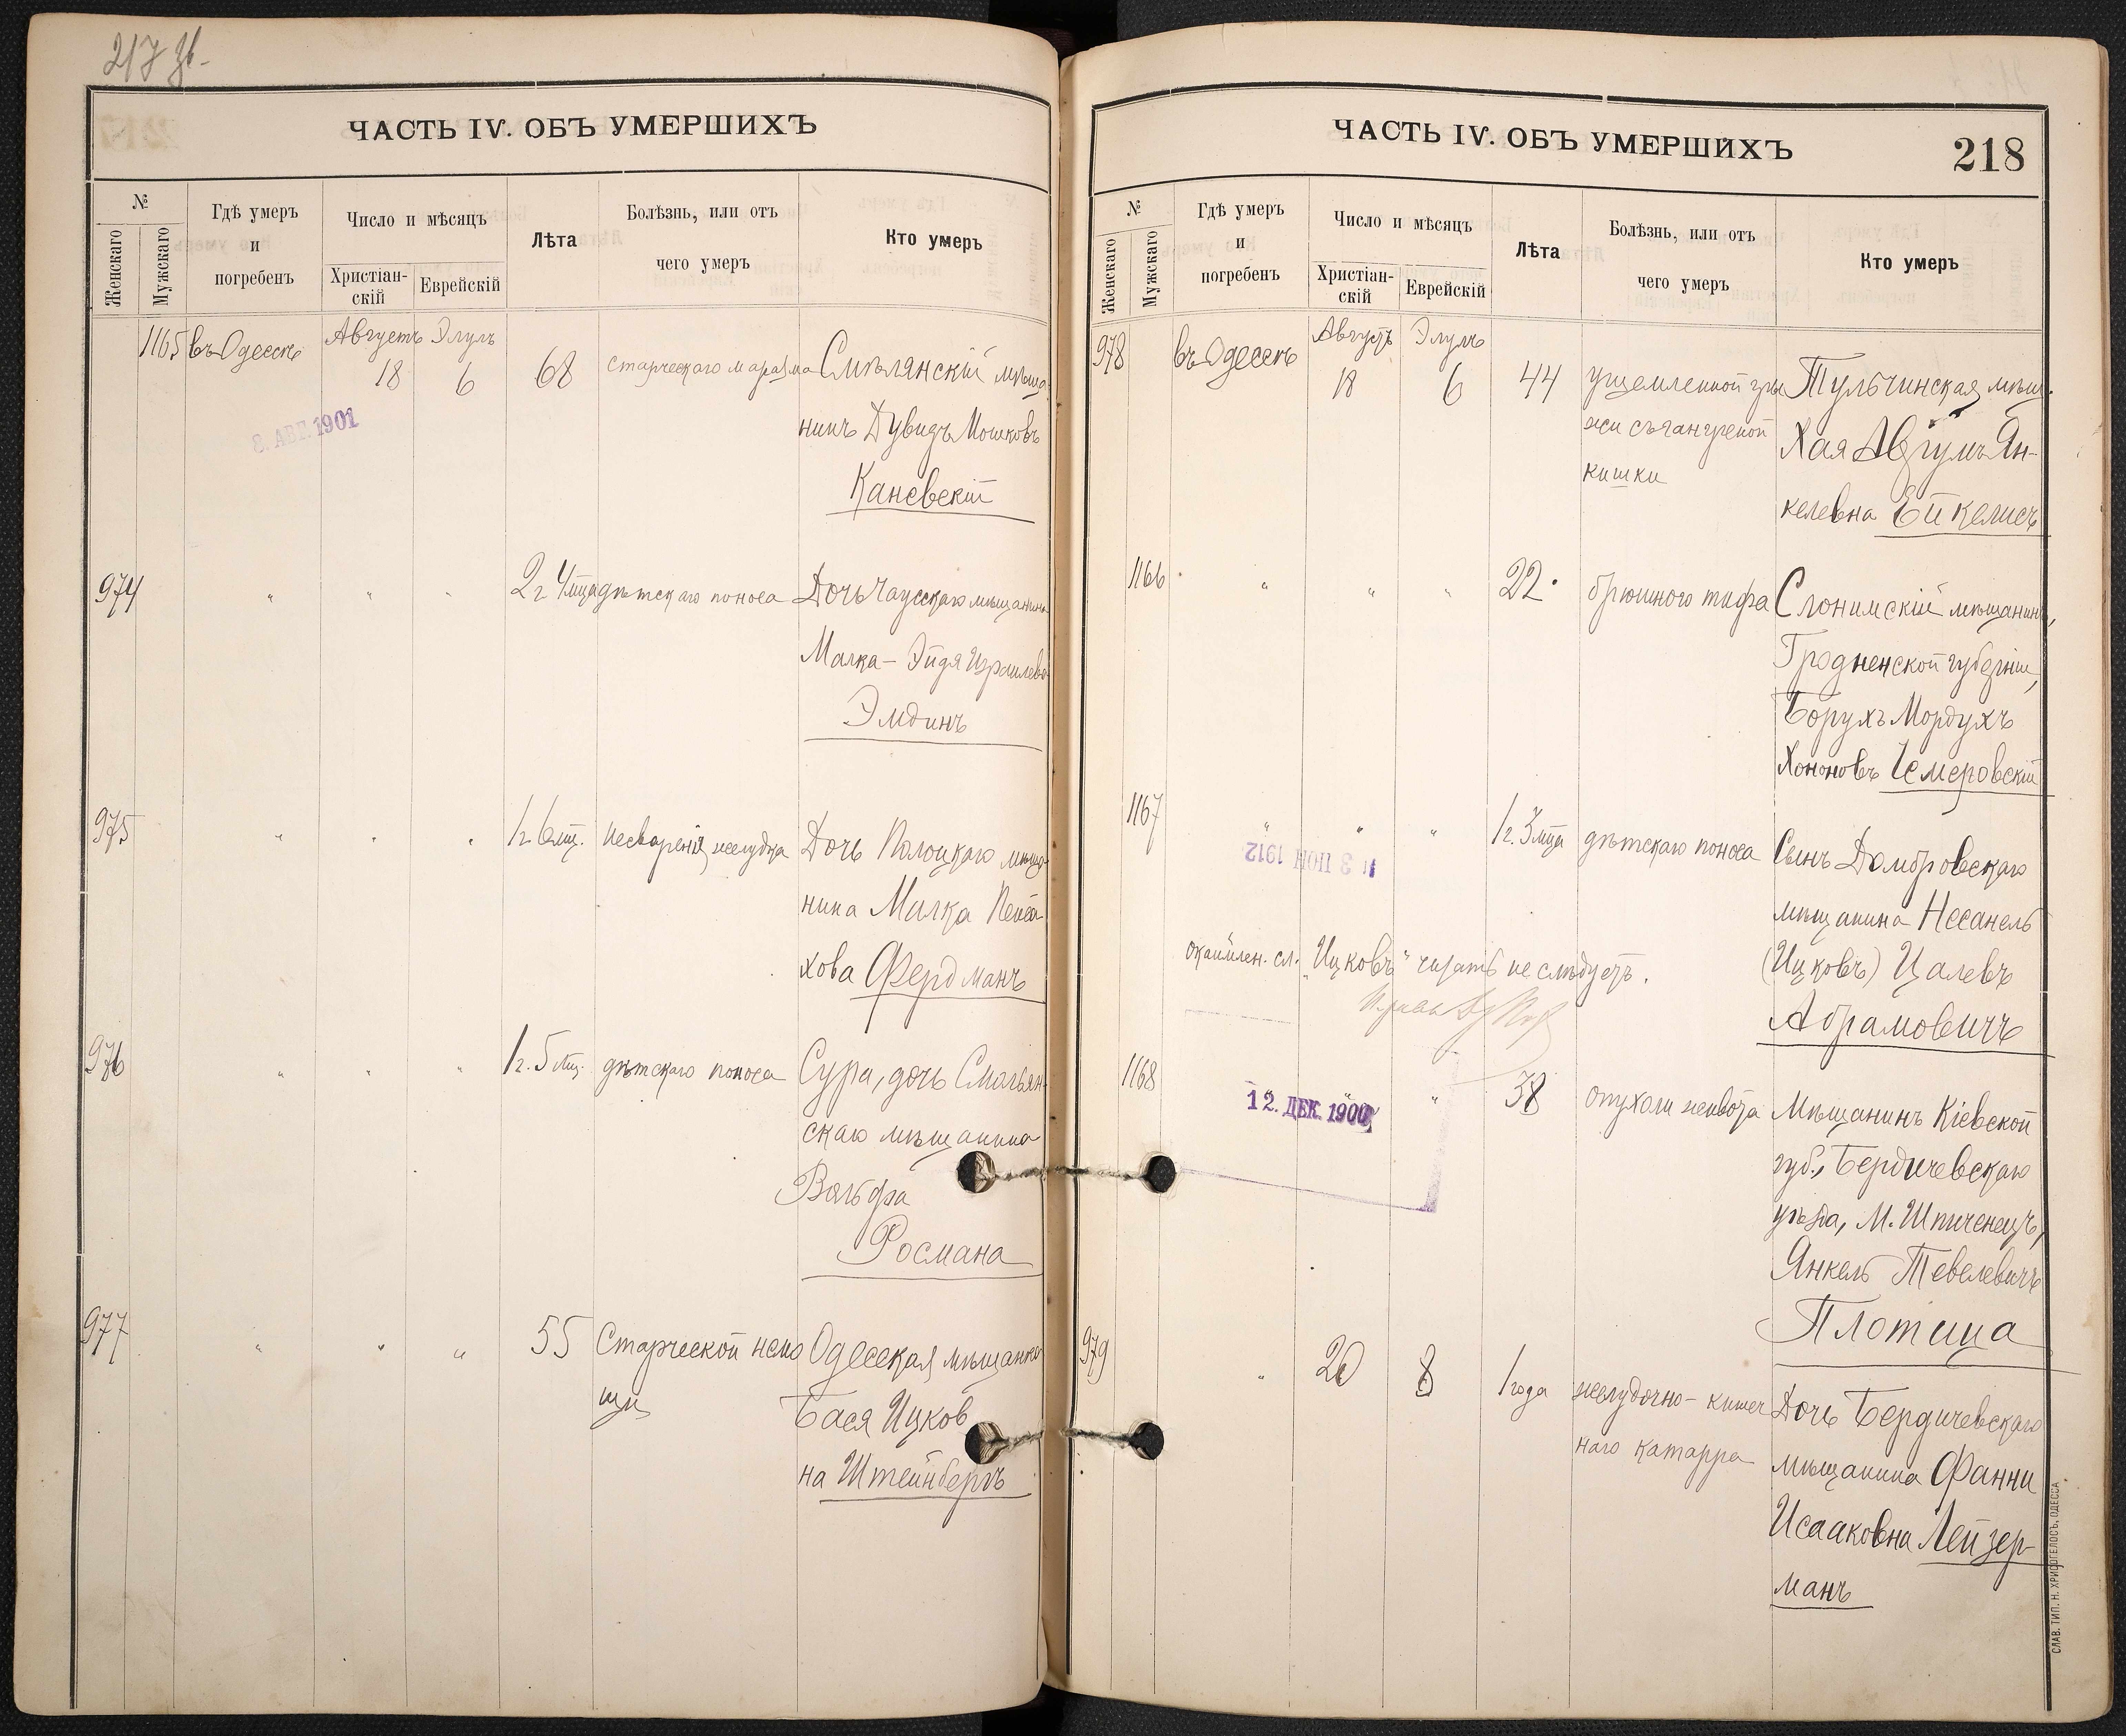 217 зв.
ЧАСТЬ IV. ОБЪ УМЕРШИХЪ
№
Женскаго
Мужскаго
Гдѣ умеръ
и
погребенъ
Число и мѣсяцъ
Христіан-
скій
Еврейскій
Лѣта
Болѣзнь, или отъ
чего умеръ
Кто умеръ
1165 въ Одессѣ Августъ 18 Элулъ 6 68 старческаго маразма Смѣлянскій мѣща
нинъ Дувидъ Мошковъ
Каневскій
8. АВГ. 1901
974 " " " 2 г. 4 мца дѣтскаго поноса Дочь Чаусскаго мѣщанина
Малка-Эйдя Израилева
Эмдинъ
975 " " " 1 г. 6 мц. несваренія желудка Дочь Полоцкаго мѣща
нина Малка Пейса-
хова Фердманъ
976 " " " 1 г. 5 мц. дѣтскаго поноса Сура, дочь Смольян-
скаго мѣщанина
Вольфа
Росмана
977 " " " 55 Старческой немо Одесская мѣщанка
щи Бася Ицков
на Штейнбергъ
ЧАСТЬ IV. ОБЪ УМЕРШИХЪ
218
№
Женскаго
Мужскаго
Гдѣ умеръ
и
погребенъ
Число и мѣсяцъ
Христіан-
скій
Еврейскій
Лѣта
Болѣзнь, или отъ
чего умеръ
Кто умеръ
978 въ Одессѣ Августъ 18 Элулъ 6 44 ущемленной гры Тульчинская мѣщ.
жи съ гангреной Хая Авгумъ Ян-
кишки келевна Ейкелисъ
1166 " " " 22 брюшного тифа Слонимскій мѣщанинъ,
Гродненской губерніи,
Борухъ Мордухъ
Хононовъ Чемеровскій
1167 " " " 1 г. 3 мца дѣтскаго поноса Сынъ Домбровскаго
3 ІЮН 1912
мѣщанина Несанель
окаймлен. сл. "Ицковъ" читать не слѣдуетъ. (Ицковъ) Цалевъ
Абрамовичъ
1168 " " 38 опухоли живота Мѣщанинъ Кіевской
12. ДЕК. 1900
губ., Бердичевскаго
уѣзда, М. Шпиченецъ,
Янкель Тевелевичъ
Плотица
979 " 20 8 1 года желудочно-кишеч Дочь Бердичевскаго
наго катарра мѣщанина Фанни
Исааковна Лейзер-
манъ
СЛАВ. ТИП. Н. ХРИСОГЕЛОСЪ, ОДЕССА